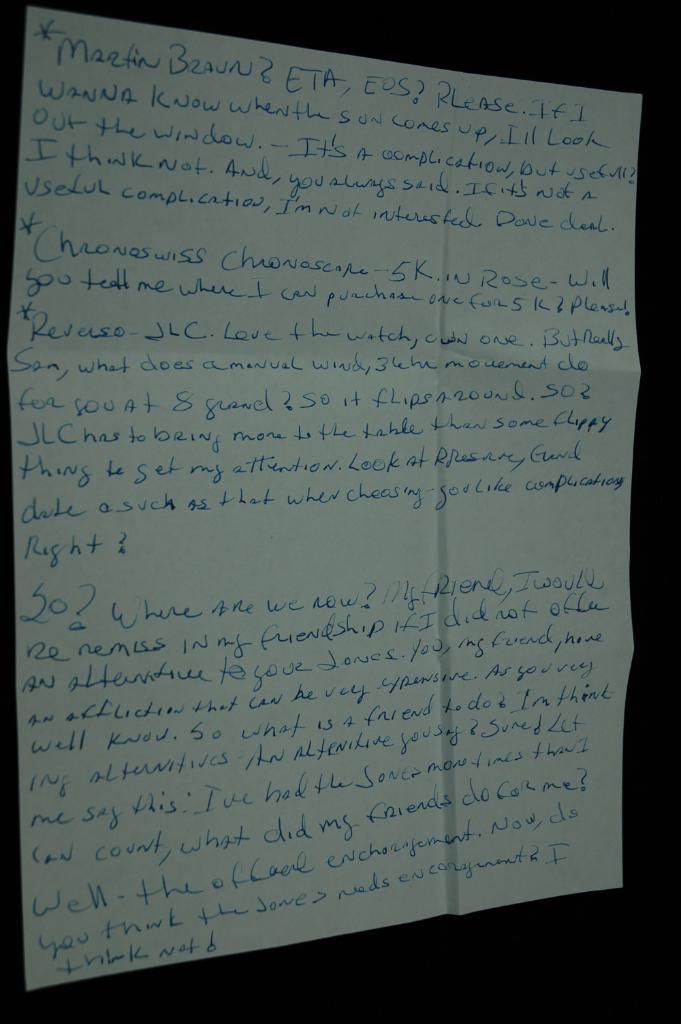 * Martin Braun? ETA, EOS? Please. If I
wanna know when the sun comes up, I'll look
out the window. - It's a complication, but useful?
I think not. And, you always said. If it's not a
useful complication, I'm not interested. Done deal.
* Chronoswiss Chronoscope - 5K. in Rose - Will
you tell me where I can purchase one for 5K? Please!
* Reverso - JLC. Love the watch, own one. But Really
Sam, what does a manual wind, 36hr movement do
for you at 8 grand? So it flips around. SO?
JLC has to bring more to the table than some flippy
thing to get my attention. Look at P/Reserve, Grand
date a such as that when choosing - you like complications
Right?
So? Where are we now? My friend, I would
be remiss in my friendship if I did not offer
an alternitive to your Jones. You, my friend, have
an affliction that can be very expensive. As you very
well know. So what is a friend to do? I'm think-
ing alternitives - An alternitive you say? Sure! Let
me say this: I've had the Jones more times than I
can count, what did my friends do for me?
Well - they offered enchoragement. Now, do
you think the Jones needs encoragment? I
think not!